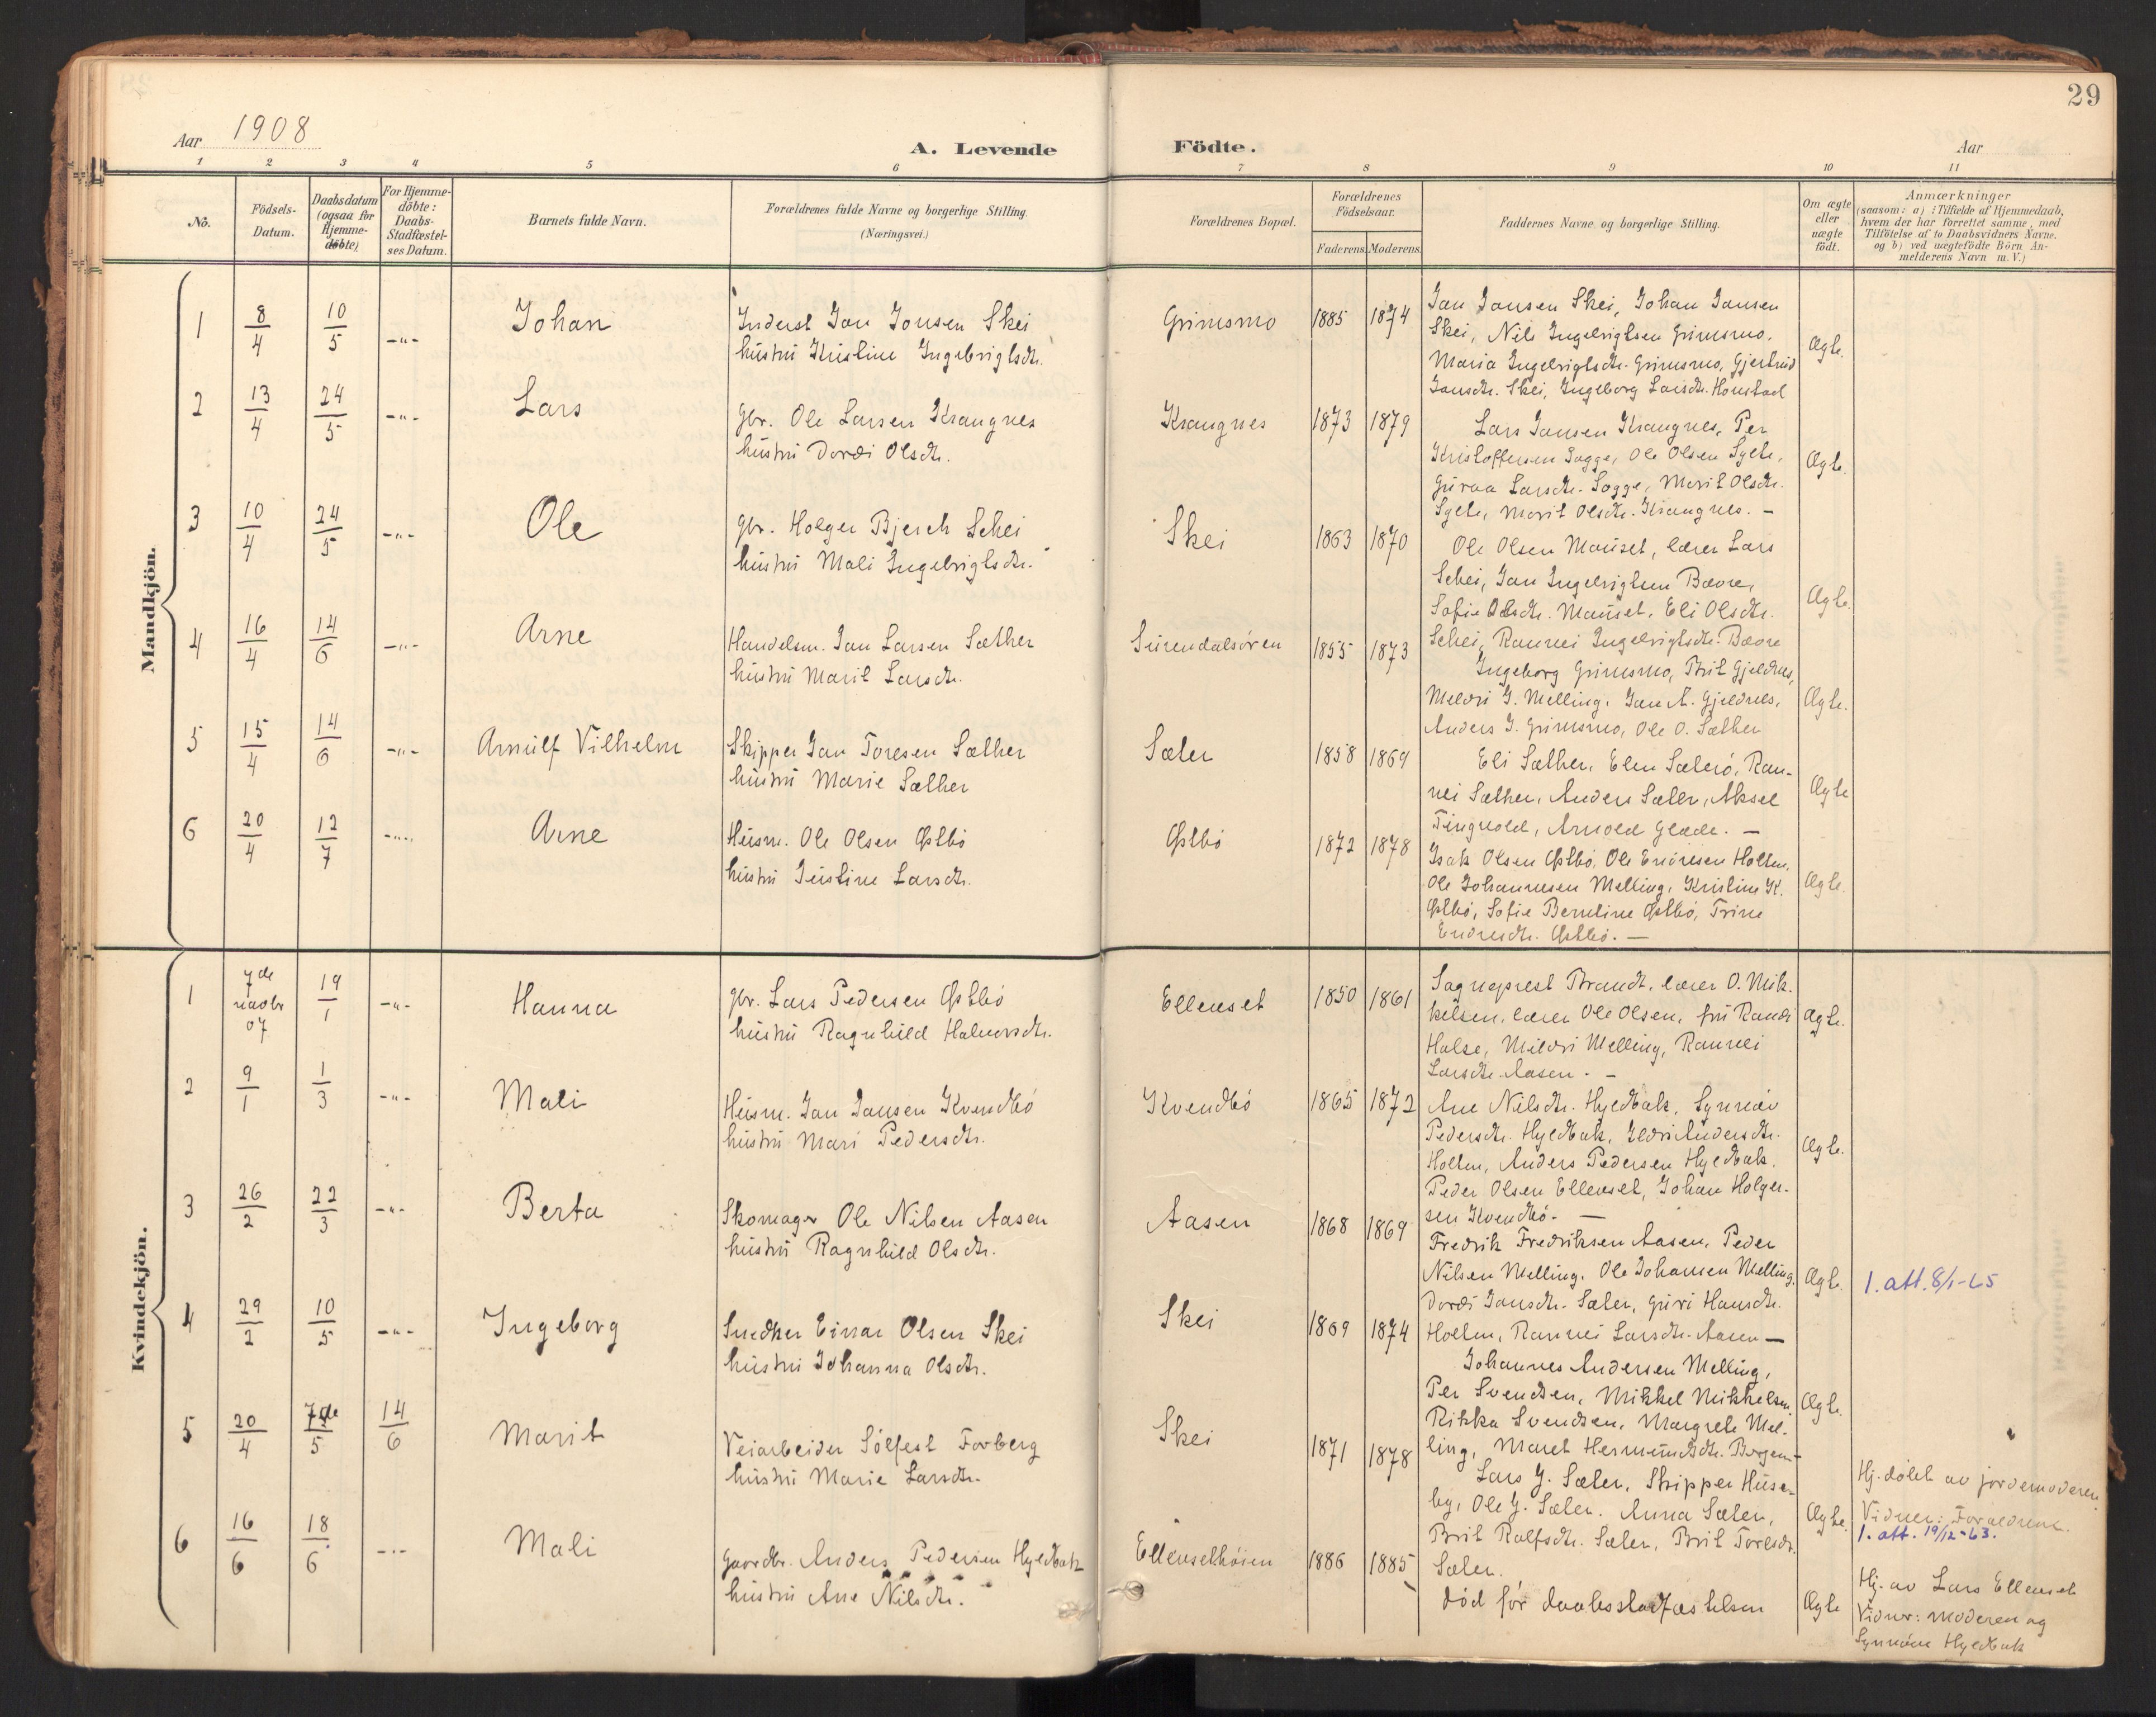 29
Aar 1908
A. Levende Födte.
Aar
1 2 3 4 5 6 7 8 9 10 11
No.
Födsels-
Datum.
Daabsdatum
(ogsaa for
Hjemme-
döbte).
For Hjemme-
döbte:
Daabs-
Stadfæstel-
ses Datum.
Barnets fulde Navn.
Forældrenes fulde Navne og borgerlige Stilling
(Næringsvei.)
Forældrenes Bopæl.
Forældrenes
Födselsaar.
Faderens. Moderens.
Faddernes Navne og borgerlige Stilling.
Om ægte
eller
uægte
födt.
Anmærkninger
(saasom: a) i Tilfælde af Hjemmedaab,
hvem der har forrettet samme, med
Tilföielse af to Daabsvidners Navne.
og b) ved uægtefödte Börn An-
melderens Navn m. V.)
Mandkjön.
1 8/4 10/5 -"- Johan
Inderst Jon Jonsen Skei
hustru Kristine Ingebrigtsdtr.
Grimsmo 1885 1874
Jon Jonsen Skei, Johan Jonsen
Skei, Nils Ingebrigtsen Grimsmo,
Maria Ingebrigtsdtr. Grimsmo, Gjertrud
Jonsdtr. Skei, Ingeborg Larsdtr. Honstad
Ægte.
2 13/4 24/5 -"- Lars
gbr. Ole Larsen Krangnes
hustru Dordi Olsdtr.
Krangnes 1873 1879
Lars Jonsen Krangnes, Per
Kristoffersen Sogge, Ole Olsen Sylte,
Guroa Larsdtr. Sogge, Marit Olsdtr.
Sylte, Marit Olsdtr. Krangnes. -
Ægte.
3 10/4 24/5 -"- Ole
gbr. Holger Bjerch Schei
hustru Mali Ingebrigtsdtr.
Skei 1863 1870
Ole Olsen Mauset, lærer Lars
Schei, Jon Ingebrigtsen Bævre,
Sofie Olsdtr. Mauset, Eli Olsdtr.
Schei, Rannei Ingebrigtsdtr. Bævre
Ægte.
4 16/4 14/6 -"- Arne
Handelsm. Jon Larsen Sæther
hustru Marit Larsdtr.
Surendalsøren 1855 1873
Ingeborg Grimsmo, Brit Gjeldnes,
Meldri J. Melling, Jon A. Gjeldnes,
Anders J. Grimsmo, Ole O. Sæther
Ægte.
5 15/4 14/6 -"- Arnulf Vilhelm
Skipper Jon Toresen Sæther
hustru Marie Sæther
Sæter 1858 1869
Eli Sæther, Elen Sæterö, Ran-
nei Sæther, Anders Sæter, Aksel
Tingvold, Arnold Glæde. -
Ægte
6 20/4 12/7 -"- Arne
Husm. Ole Olsen Østbö
hustru Justine Larsdtr.
Østbö 1872 1878
Isak Olsen Østbö, Ole Endresen Holten,
Ole Johannesen Melling, Kristine K.
Østbö, Sofie Berntine Østbö, Trine
Endresdtr. Østbö. -
Ægte.
Kvindekjön.
1 7de novbr 07 19/1 -"- Hanna
gbr. Lars Pedersen Østbö
hustru Ragnhild Halvorsdtr.
Ellenset 1850 1861
Sogneprest Brandt, lærer O. Mik-
kelsen, lærer Ole Olsen, fru Randi
Halse, Mildri Melling, Rannei
Larsdtr. Aasen. -
Ægte.
2 9/1 1/3 -"- Mali
Husm. Jon Jonsen Kvendbö
hustru Mari Pedersdtr.
Kvendbö 1865 1872
Ane Nilsdtr. Hyldbak, Synnöv
Pedersdtr. Hyldbak, Ildri Andersdtr.
Holten, Anders Pedersen Hyldbak.
Peder Olsen Ellenset, Johan Holger-
sen Kvendbö. -
Ægte.
3 26/2 22/3 -"- Berta
Skomager Ole Nilsen Aasen
hustru Ragnhild Olsdtr.
Aasen 1868 1869
Fredrik Fredriksen Aasen, Peder
Nilsen Melling, Ole Johansen Melling,
Dordi Jonsdtr. Sæter, Guri Hansdtr.
Holten, Rannei Larsdtr. Aasen -
Ægte.
1. att. 8/1-65
4 29/2 10/5 -"- Ingeborg
Snedker Einar Olsen Skei
hustru Johanna Olsdtr.
Skei 1869 1874
Johannes Andersen Melling,
Per Svendsen, Mikkel Mikkelsen,
Rikka Svendsen, Margrete Mel-
ling, Maret Hermundsdtr. Borgen-
Ægte.
5 20/4 7de/5 14/6 Marit
Veiarbeider Sölfest Forberg
hustru Marie Larsdtr.
Skei 1871 1878
Lars J. Sæter, Skipper Huse-
by, Ole J. Sæter. Anna Sæter,
Brit Rolfsdtr. Sæter, Brit Toresdr.
Sæter.
Ægte.
Hj. döbt av jordemoderen.
Vidner: Forældrene.
1. att. 19/12-63.
6 16/6 18/6 -"- Mali
Gaardbr. Anders Pedersen Hyldbak
hustru Ane Nilsdtr.
Ellensethöien 1886 1885
död för daabsstadfæstelsen
Ægte
Hj. av Lars Ellenset
Vidner: moderen og
Synnöve Hyldbak